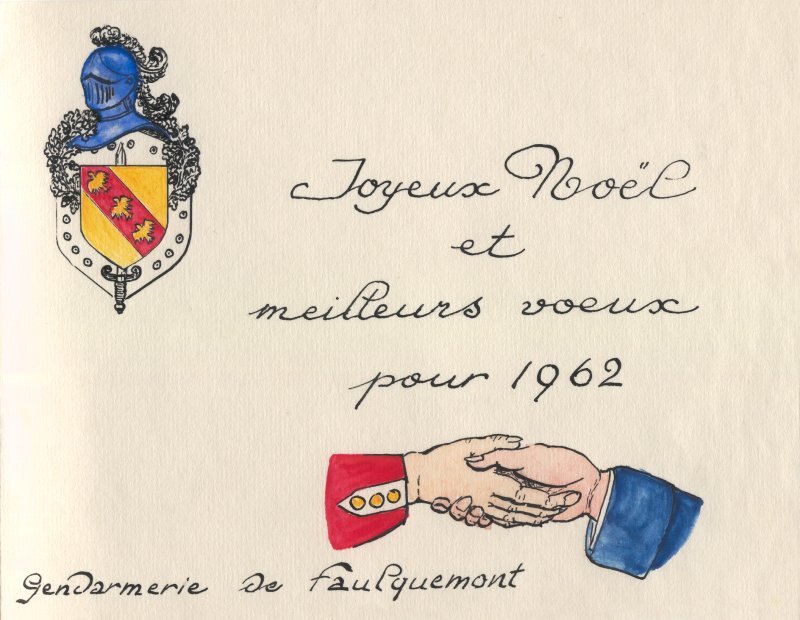 Joyeux Noël
et
meilleurs voeux
pour 1962
Gendarmerie de Faulquemont